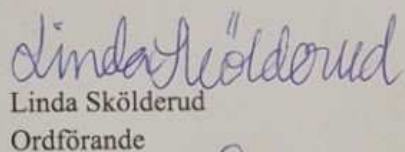 Linda Skölderud
Linda Skölderud
Ordförande